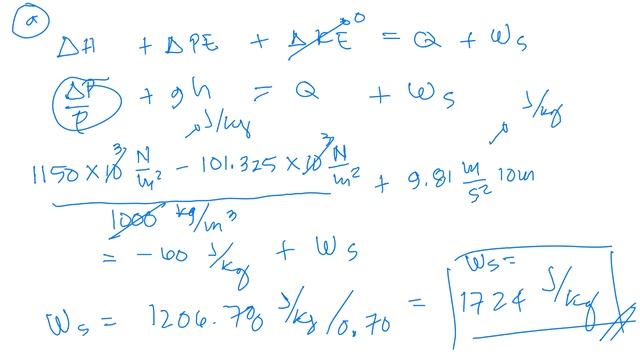 a
ΔH + ΔPE + ΔKE⁰ = Q + Ws
ΔP/ρ + gh = Q + Ws
J/kg J/kg
1150 × 10³ N/m² − 101.325 × 10³ N/m² / 1000 kg/m³ + 9.81 m/s² 10m
= −60 J/kg + Ws
Ws = 1206.770 J/kg /0.70 = Ws = 1724 J/kg